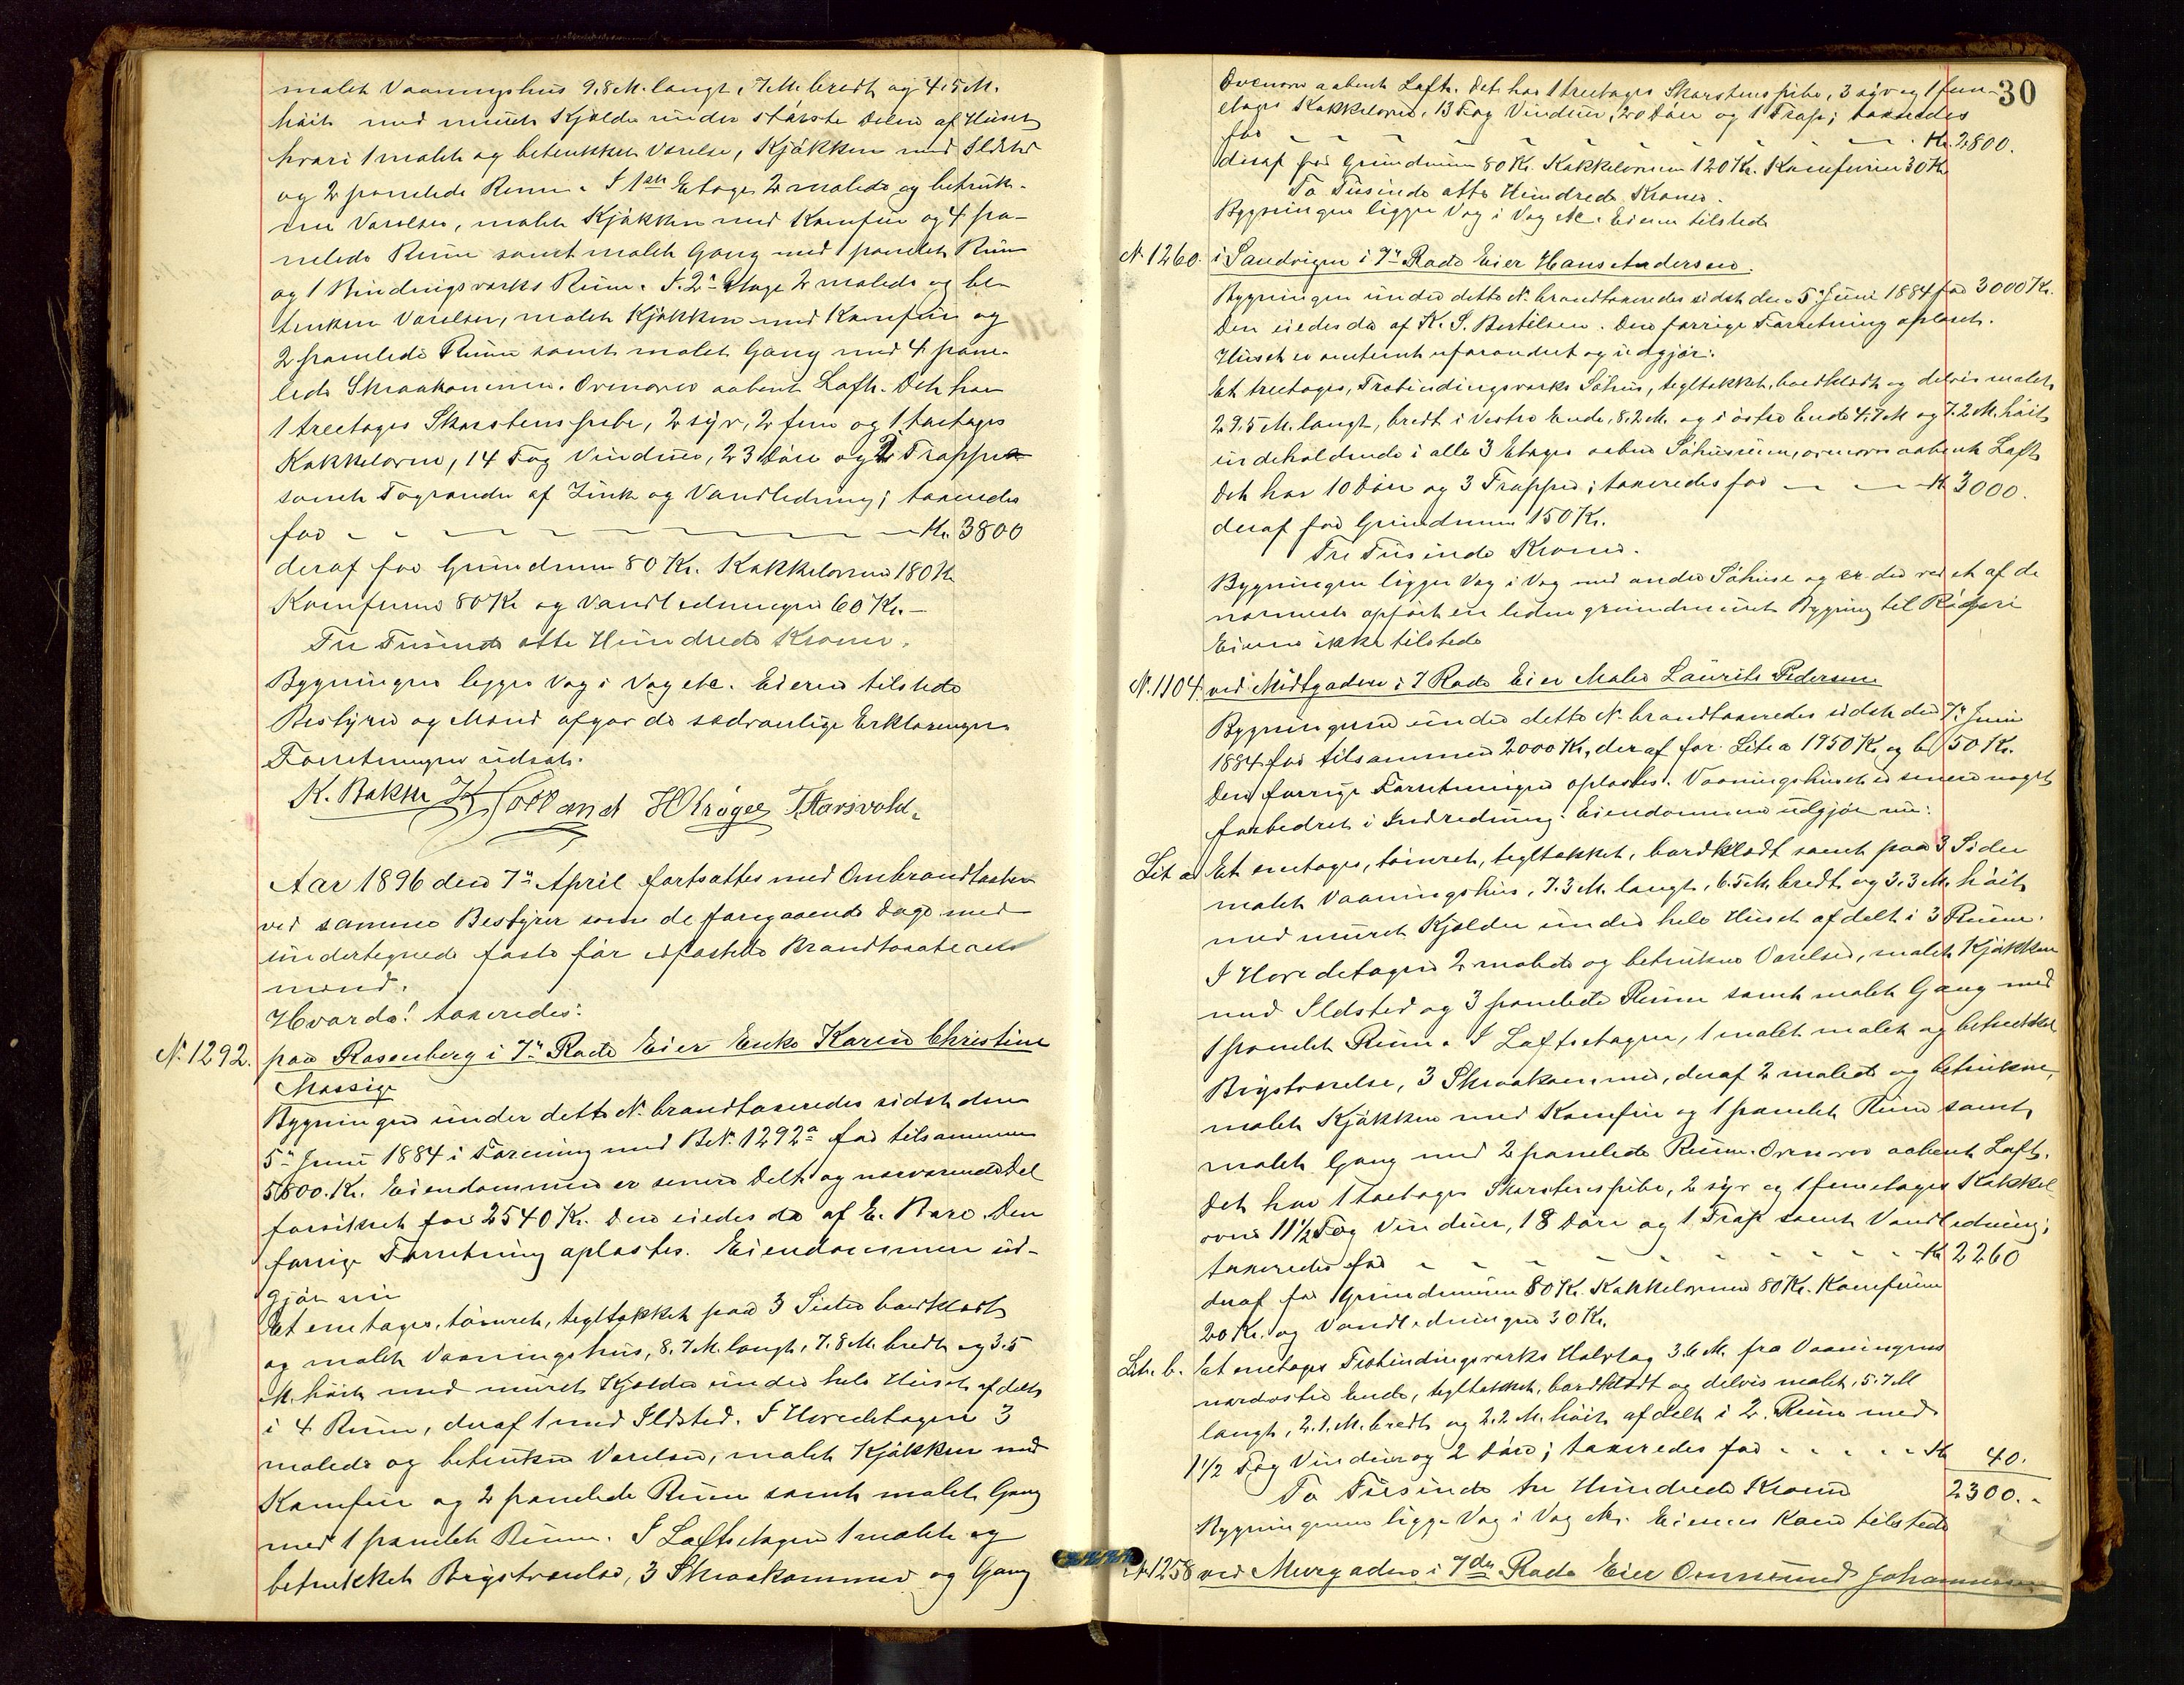 malet Vaaningshus 9,8 M. langt, 7 M. bredt og 4,5 M.
høit med muret Kjælder under største Delen af Huset
hvori 1 malet og betrukket Værelse, Kjøkken med Ildsted
og 2 panelede Rum. I 1ste Etage 2 malede og betruk-
ne Værelser, malet Kjøkken med Komfur og 4 pa-
nelede Rum samt malet Gang med 1 panelet Rum
og 1 Bindingsværks Rum. I 2n Etage 2 malede og be-
trukne Værelser, malet Kjøkken med Komfur og
2 panelede Rum samt malet Gang med 4 pane-
lede Skraakammer. Ovenover aabent Loft. Det har
1 treetages Skorstenspibe, 2 syv, 2 fem og 1 toetages
Kakkelovne, 14 Fag Vinduer, 23 Døre og 2 Trapper
samt Tagrender af Zink og Vandledning; taxeredes
for - - - Kr. 3800
deraf for Grundmur 80 Kr. Kakkelovne 180 Kr
Komfurene 80 Kr og Vandledningen 60 Kr. -
Tre Tusinde otte Hundrede Kroner.
Bygningen ligger Væg i Væg etc. Eieren tilstede
Bestyrer og Mænd afgav de sædvanlige Erklæringer.
Forretningen udsat.
K. Bakke
Aar 1896 den 7n April fortsattes med Ombrandtaxten
ved samme Bestyrer som de foregaaende Dage med
undertegnede faste før edfæstede Brandtaxations
mænd.
Hvorda! taxeredes:
N. 1292. paa Rosenberg i 7n Rode Eier Enke Karen Christine
Mossige
Bygningen under dette N. brandtaxeredes sidst den
5n Juni 1884 i Forening med BN. 1292a for tilsammen
5800. Kr. Eiendommen er senere Delt og nærværende Del
forsikret for 2540 Kr. Den eiedes da af E. Bare. Den
forrige Forretning oplæstes. Eiendommen ud-
gjør nu
Et enetages, tømret, tegltækket paa 3 Sider bordklædt
og malet Vaaningshus, 8.7 M. langt, 7.8 M. bredt og 3.5
M. høit med muret Kjælder under hele Huset afdelt
i 4 Rum, deraf 1 med Ildsted. I Hovedetagen 3
malede og betrukne Værelser, malet Kjøkken med
Komfur og 2 panelede Rum samt malet Gang
med 1 panelet Rum. I Loftsetagen 1 malet og
betrukket Brystværelse, 3 Skraakammer og Gang
30
Ovenover aabent Loft. Det har 1 treetages Skorstenspibe, 3 syv og 1 fem-
etages Kakkelovne, 13 Fag Vinduer, 20 Døre og 1 Trap; taxeredes
for - - - Kr. 2,800.
deraf for Grundmur 80 Kr. Kakkelovnene 120 Kr. Komfuren 30 Kr
To Tusinde otte Hundrede Kroner.
Bygningen ligger Væg i Væg etc. Eieren tilstede
N. 1260. i Sandvigen i 7n Rode Eier Hans Andersen.
Bygningen under dette N. brandtaxeredes sidst den 5n Juni 1884 for 3000 Kr.
Den eiedes da af K. S. Bertelsen. Den forrige Forretning oplæst.
Huset er omtrent uforandret og udgjør:
Et treetages, Træbindingsværks Søhus, tegltækket, bordklædt og delvis malet
29.5 M. langt, bredt i vestre Ende, 8,2 M. og i østre Ende 4,7 M og 7.2 M. høit
indeholdende i alle 3 Etager aabne Søhusrum, ovenover aabent Loft
Det har 10 Døre og 3 Trapper; taxeredes for - - Kr 3000.
deraf for Grundmur 150 Kr.
Tre Tusinde Kroner.
Bygningen ligger Væg i Væg med andre Søhuse og er der ved et af de
nærmeste opført en liden grundmuret Bygning til Røgeri
Eieren ikke tilstede
N. 1104. ved Midtgaden i 7 Rode Eier Maler Laurits Pedersen
Bygningerne under dette N. brandtaxeredes sidst den 7n Juni
1884 for tilsammen 2000 Kr, deraf for Litr a 1950 Kr og b 50 Kr.
Den forrige Forretningen oplæstes. Vaaningshuset er senere noget
forbedret i Indredning. Eiendommen udgjør nu:
Lit a. Et enetages, tømret, tegltækket, bordklædt samt paa 3 Sider
malet Vaaningshus, 7.3 M. langt, 6.5 M. bredt og 3.3 M. høit
med muret Kjælder under hele Huset afdelt i 3 Rum.
I Hovedetagen 2 malede og betrukne Værelser, malet Kjøkken
med Ildsted og 3 panelede Rum samt malet Gang med
1 panelet Rum. I Loftsetagen, 1 malet malet og betrukket
Brystværelse, 3 Skraakammer, deraf 2 malede og betrukne,
malet Kjøkken med Komfur og 1 panelet Rum samt
malet Gang med 2 panelede Rum. Ovenover aabent Loft.
Det har 1 toetages Skorstenspibe, 2 syv og 1 femetages Kakkel
ovne 11 1/2 Fag Vinduer, 18 Døre og 1 Trap samt Vandledning;
taxeredes for - - - Kr 2260
deraf for Grundmuren 80 Kr. Kakkelovnene 80 Kr. Komfuren
20 Kr. og Vandledningen 30 Kr.
Litr. b. Et enetages Træbindingsværks Halvtag 3.6 M. fra Vaaningens
nordøstre Ende, tegltækket, bordklædt og delvis malet, 5.7 M
langt, 2.1. M. bredt og 2.2 M. høit, afdelt i 2 Rum med
1 1/2 Fag Vinduer og 2 Døre; taxeredes for - - - Kr 40.
To Tusinde tre Hundrede Kroner 2300. -
Bygningerne ligge Væg i Væg etc. Eierens Kone tilstede
N. 1258 ved Murgaden i 7de Rode Eier Ommund Johannesen